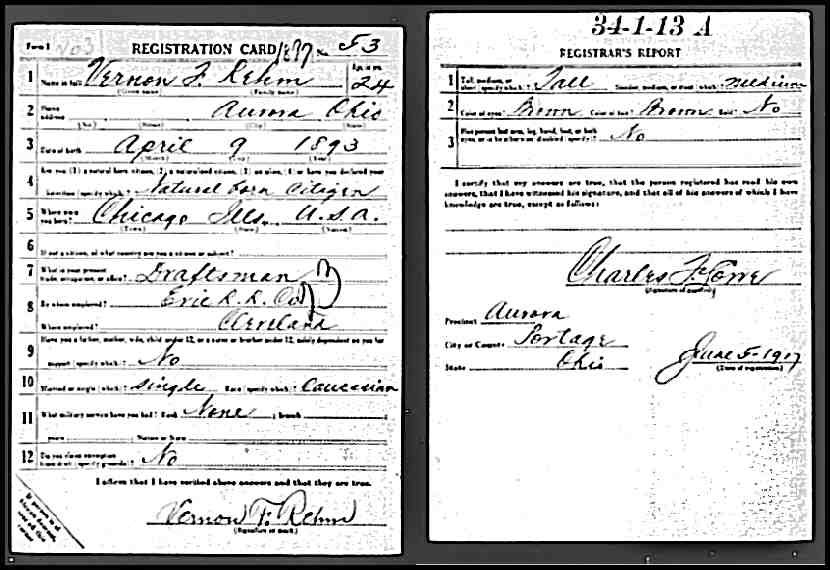 Form 1 REGISTRATION CARD 1877 No. 53
1 Name in full Vernon F. Rehm Age, in yrs. 24
(Given name) (Family name)
2 Home address Aurora Ohio
(No.) (Street) (City) (State)
3 Date of birth April 9 1893
(Month) (Day) (Year)
4 Are you (1) a natural born citizen, (2) a naturalized citizen, (3) an alien, (4) or have you declared your
intention (specify which)? Natural born Citizen
5 Where were you born? Chicago Ills. U.S.A.
(Town) (State) (Nation)
6 If not a citizen, of what country are you a citizen or subject?
7 What is your present trade, occupation, or office? Draftsman
8 By whom employed? Erie R. R. Co
Where employed? Cleveland
9 Have you a father, mother, wife, child under 12, or a sister or brother under 12, solely dependent on you for
support (specify which)? No
10 Married or single (which)? Single Race (specify which)? Caucasian
11 What military service have you had? Rank None ; branch
years ; Nation or State
12 Do you claim exemption from draft (specify grounds)? No
I affirm that I have verified above answers and that they are true.
Vernon F. Rehm
(Signature or mark)
34-1-13 A
REGISTRAR'S REPORT
1 Tall, medium, or short (specify which)? Tall Slender, medium, or stout (which)? Medium
2 Color of eyes? Brown Color of hair? Brown Bald? No
3 Has person lost arm, leg, hand, foot, or both eyes, or is he otherwise disabled (specify)? No
I certify that my answers are true, that the person registered has read his own
answers, that I have witnessed his signature, and that all of his answers of which I have
knowledge are true, except as follows:
Charles F.
(Signature of registrar)
Precinct Aurora
City or County Portage
State Ohio June 5-1917
(Date of registration)